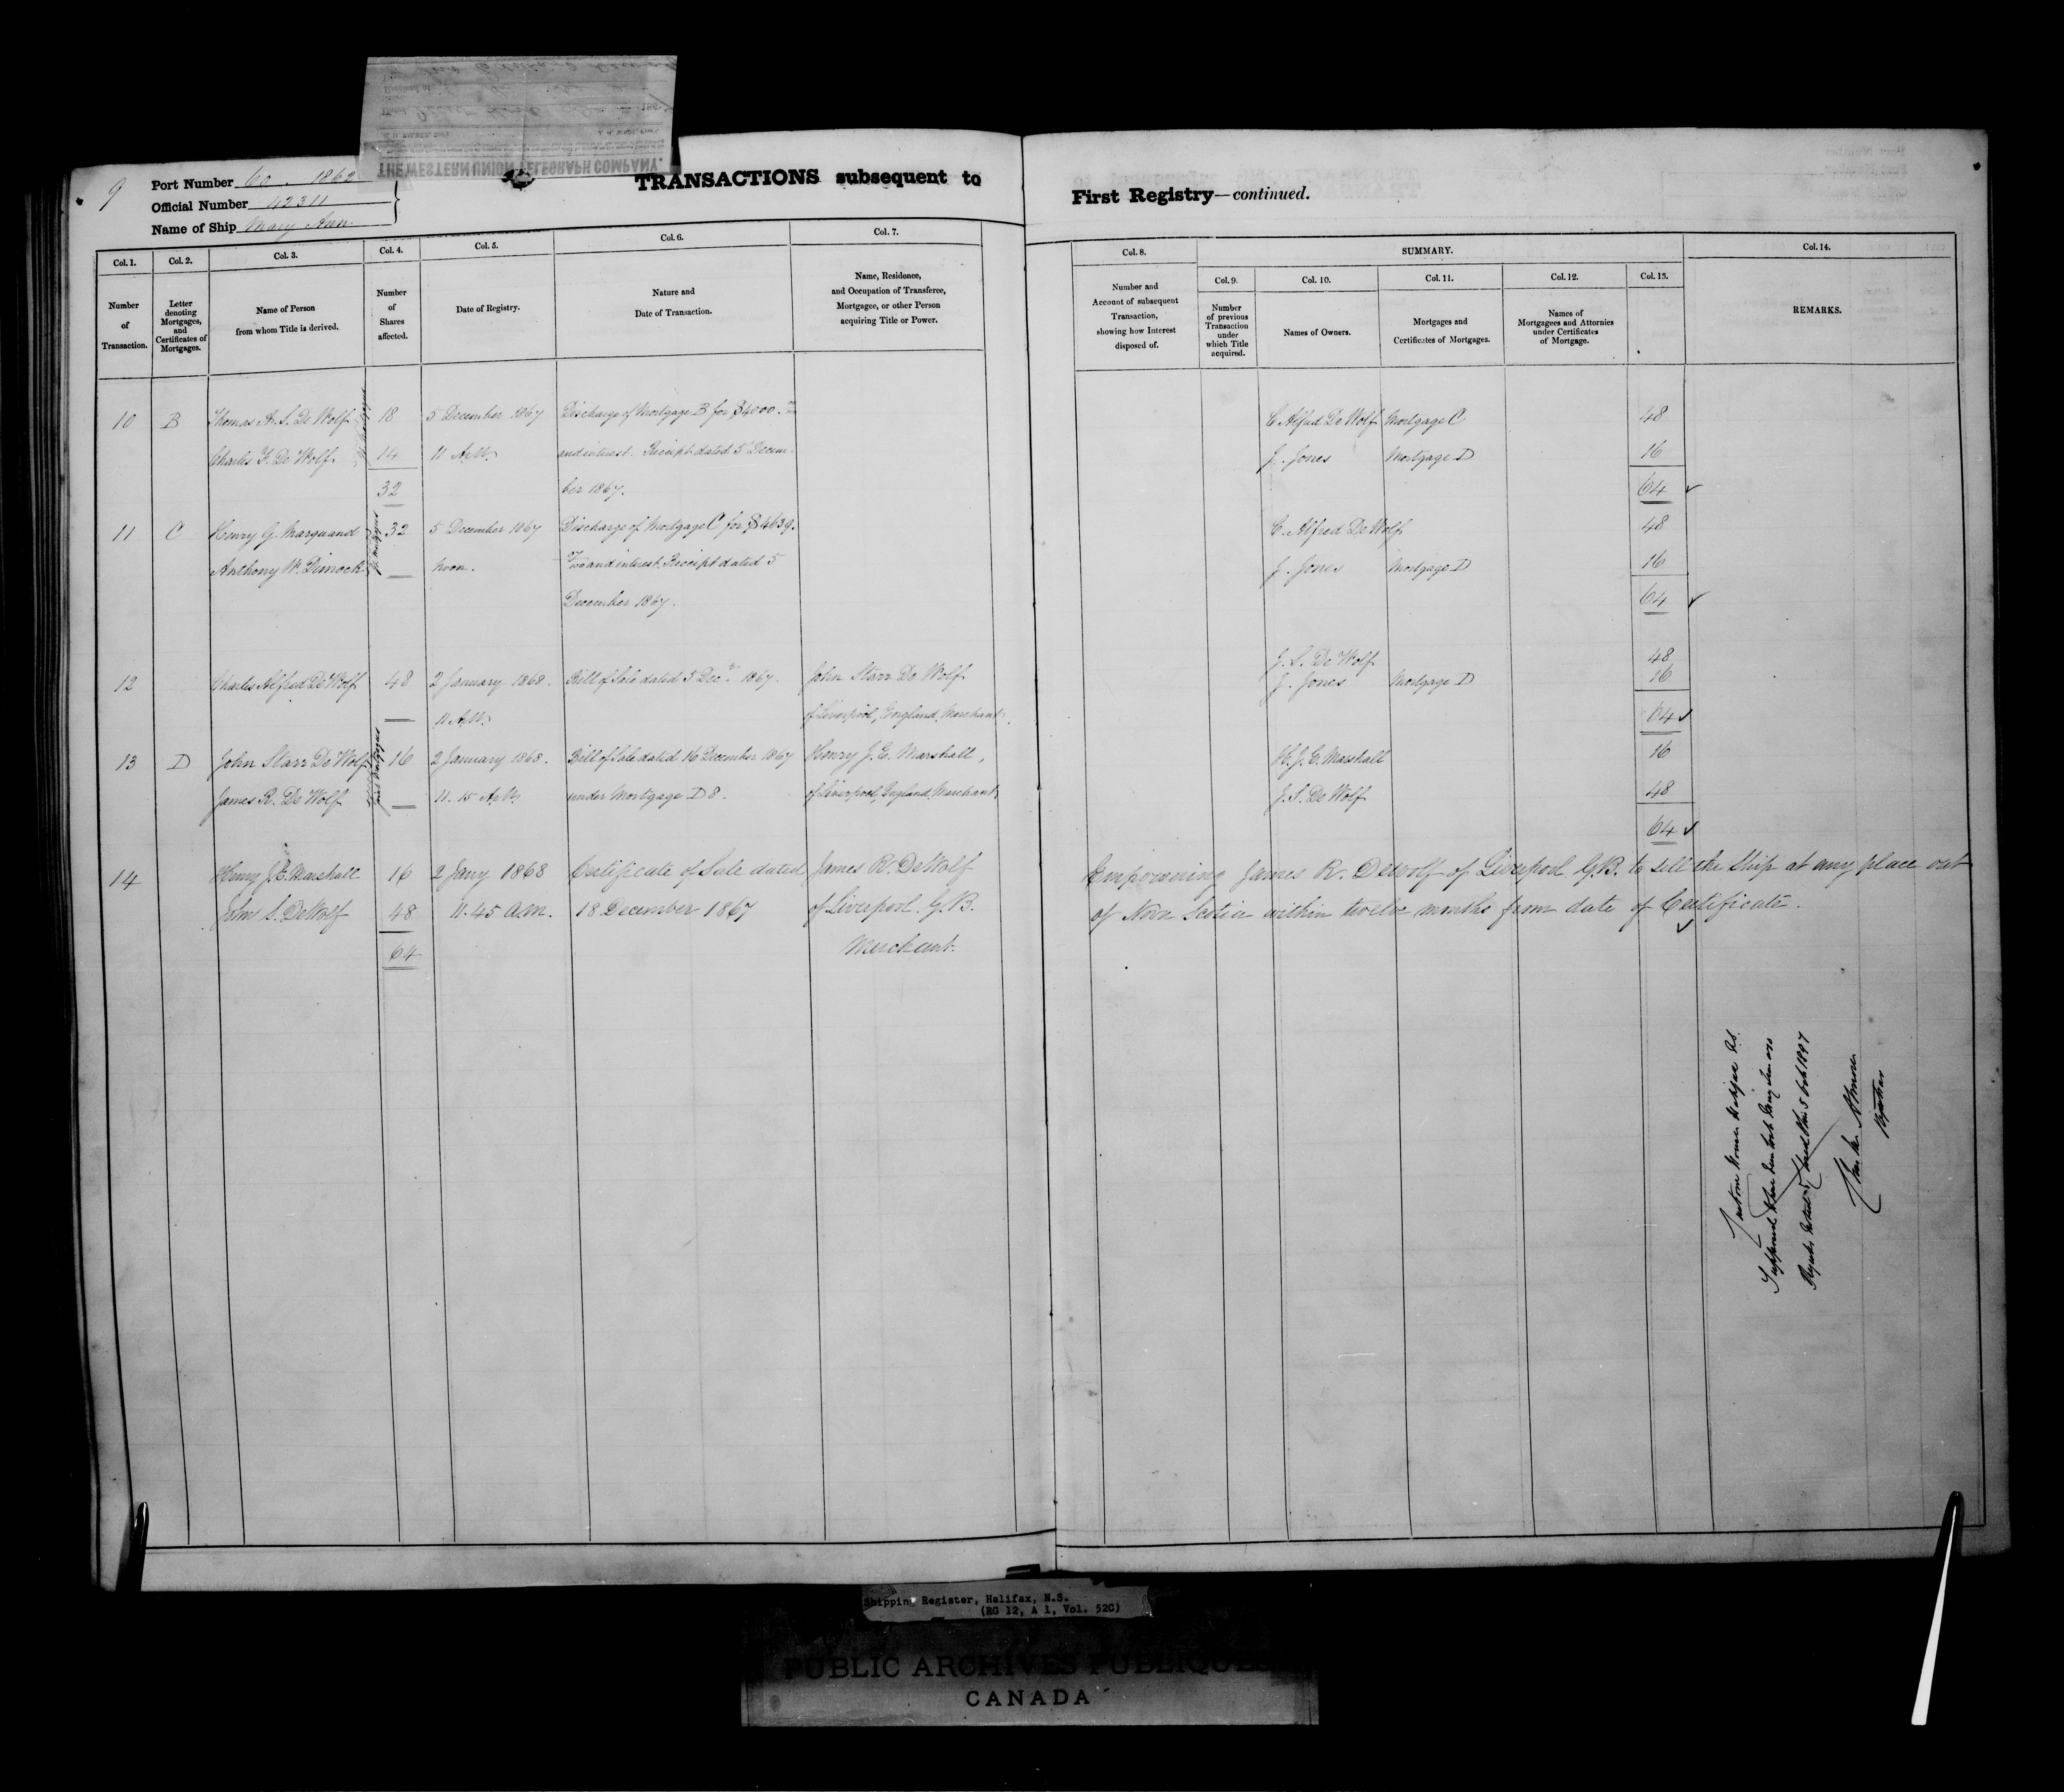 THE WESTERN UNION TELEGRAPH COMPANY.
9
Port Number 60. 1862
Official Number 42311
Name of Ship Mary Ann
TRANSACTIONS subsequent to
First Registry—continued.
Col. 1.
Number
of
Transaction.
Col. 2.
Letter
denoting
Mortgages,
and
Certificates of
Mortgages.
Col. 3.
Name of Person
from whom Title is derived.
Col. 4.
Number
of
Shares
affected.
Col. 5.
Date of Registry.
Col. 6.
Nature and
Date of Transaction.
Col. 7.
Name, Residence,
and Occupation of Transferee,
Mortgagee, or other Person
acquiring Title or Power.
Col. 8.
Number and
Account of subsequent
Transaction,
showing how Interest
disposed of.
SUMMARY.
Col. 9.
Number
of previous
Transaction
under
which Title
acquired.
Col. 10.
Names of Owners.
Col. 11.
Mortgages and
Certificates of Mortgages.
Col. 12.
Names of
Mortgagees and Attornies
under Certificates
of Mortgage.
Col. 13.
Col. 14.
REMARKS.
10 B Thomas A. S. De Wolf 18 5 December 1867 Discharge of Mortgage B for $4000. C. Alfred De Wolf Mortgage C 48
Charles F. De Wolf 14 11 A.M. and interest. Receipt dated 5 Decem J. Jones Mortgage D 16
32 ber 1867. 64
11 C Henry G. Marquand 32 5 December 1867 Discharge of Mortgage C for $4639. C. Alfred De Wolf 48
Anthony W. Dimock Noon. and interest. Receipt dated 5 J. Jones Mortgage D 16
December 1867. 64
J. S. De Wolf 48
12 Charles Alfred De Wolf 48 2 January 1868. Bill of Sale dated 5 Decr 1867. John Starr De Wolf J. Jones Mortgage D 16
11 A.M. of Liverpool, England, Merchant. 64
13 D John Starr De Wolf 16 2 January 1868. Bill of Sale dated 16 December 1867 Henry J. E. Marshall, H. J. E. Marshall 16
James R. De Wolf Joint Mortgagees 11. 15 A.M. under Mortgage D 8. of Liverpool, England, Merchant J. S. De Wolf 48
64
14 Henry J. E. Marshall 16 2 Jany 1868 Certificate of Sale dated James R. DeWolf Empowering James R. DeWolf of Liverpool G.B. to sell the Ship at any place out
John S. DeWolf 48 11. 45 A.M. 18 December 1867 of Liverpool. G.B. of Nova Scotia within twelve months from date of Certificate.
64 Merchant.
Custom House Halifax N.S.
Registrar
Shipping Register, Halifax, N.S.
(RG 12, A 1, Vol. 52C)
PUBLIC ARCHIVES PUBLIQUES
CANADA